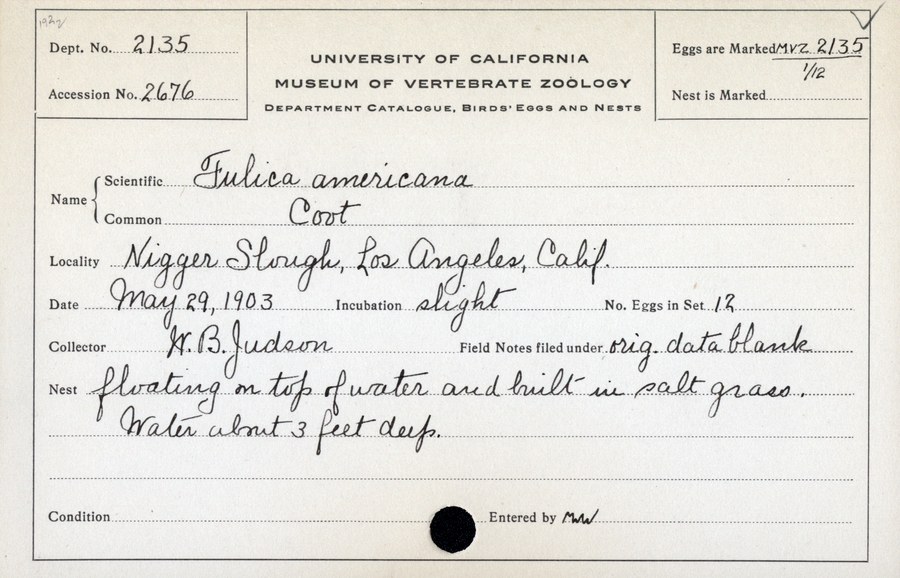 Dept. No. 2135
Accession No. 2676
UNIVERSITY OF CALIFORNIA
MUSEUM OF VERTEBRATE ZOÖLOGY
DEPARTMENT CATALOGUE, BIRDS' EGGS AND NESTS
Eggs are Marked MVZ 2135
1/12
Nest is Marked
Name { Scientific Fulica americana
Common Coot
Locality Nigger Slough, Los Angeles, Calif.
Date May 29, 1903 Incubation slight No. Eggs in Set 12
Collector W. B. Judson Field Notes filed under orig. data blank
Nest floating on top of water and built in salt grass.
Water about 3 feet deep.
Condition Entered by MW